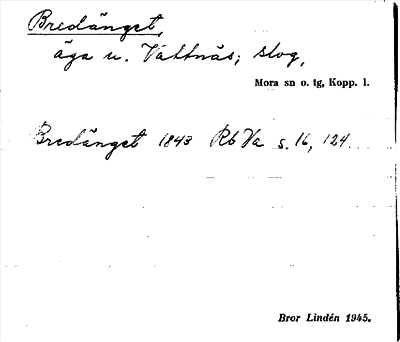 Bredänget,
äga u. Vattnäs; skog,
Mora sn o. tg, Kopp. l.
Bredänget 1843 Rb Va s. 16, 124.
Bror Lindén 1945.